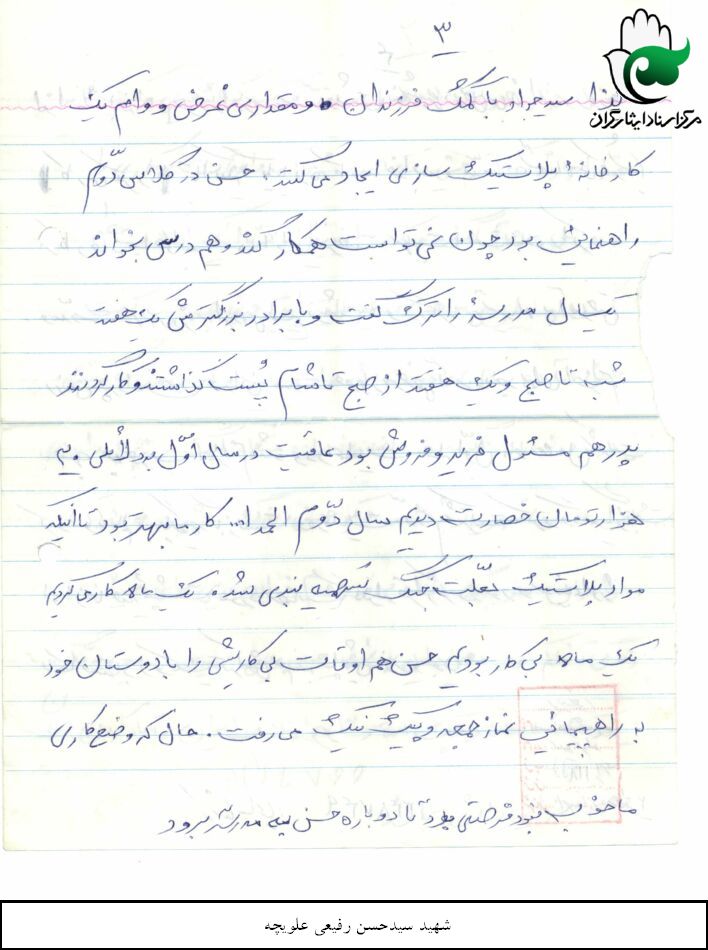 ۳
مرکز اسناد ایثارگران
لذا سید جواد با کمک فرزندان و مقداری قرض و وام یک
کارخانهٔ پلاستیک سازی ایجاد می‌کنند، حسن در کلاس دوّم
راهنمائی بود چون نمی توانست هم کار کند و هم درس بخواند
یکسال مدرسه را ترک گفت و با برادر بزرگترش یک هفته
شب تا صبح و یک هفته از صبح تا شام پُست گذاشتند و کار کردند
پدر هم مسئول خرید و فروش بود عاقبت در سال اوّل بدلایلی
هزار تومان خصارت دیدیم سال دوّم الحمدا... کار ما بهتر بود تا اینکه
مواد پلاستیک بعلّت جنگ سهمیه بندی شد. یک ماه کار می کردیم
یک ماه بی کار بودیم حسن هم اوقات بی کاریش را با دوستان خود
به راهپیمائی نماز جمعه و پیک نیک می رفت. حال که وضع کاری
ما خوب نبود فرصتی بود تا دوباره حسن به مدرسه برود
شهید سیدحسن رفیعی علویچه